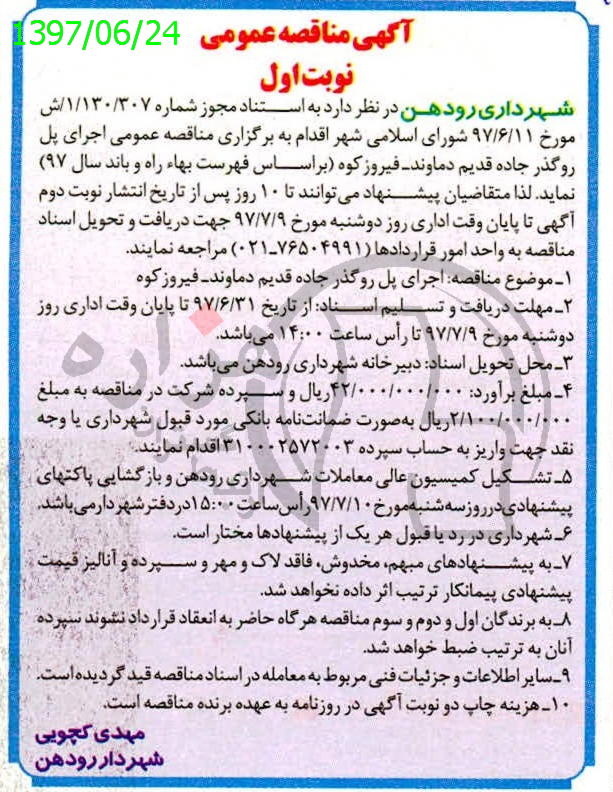 1397/06/24
آگهی مناقصه عمومی
نوبت اول
شهرداری رودهن در نظر دارد به استناد مجوز شماره ۱/۱۳۰/۳۰۷/ش
مورخ ۹۷/۶/۱۱ شورای اسلامی شهر اقدام به برگزاری مناقصه عمومی اجرای پل
روگذر جاده قدیم دماوند_فیروزکوه (براساس فهرست بهاء راه و باند سال ۹۷)
نماید. لذا متقاضیان پیشنهاد می‌توانند تا ۱۰ روز پس از تاریخ انتشار نوبت دوم
آگهی تا پایان وقت اداری روز دوشنبه مورخ ۹۷/۷/۹ جهت دریافت و تحویل اسناد
مناقصه به واحد امور قراردادها (۷۶۵۰۴۹۹۱_۰۲۱) مراجعه نمایند.
۱_موضوع مناقصه: اجرای پل روگذر جاده قدیم دماوند_فیروزکوه
۲_مهلت دریافت و تسلیم اسناد: از تاریخ ۹۷/۶/۳۱ تا پایان وقت اداری روز
دوشنبه مورخ ۹۷/۷/۹ تا رأس ساعت ۱۴:۰۰ می‌باشد.
۳_محل تحویل اسناد: دبیرخانه شهرداری رودهن می‌باشد.
۴_مبلغ برآورد: ۴۲/۰۰۰/۰۰۰/۰۰۰ریال و سپرده شرکت در مناقصه به مبلغ
۲/۱۰۰/۰۰۰/۰۰۰ریال به‌صورت ضمانت‌نامه بانکی مورد قبول شهرداری یا وجه
نقد جهت واریز به حساب سپرده ۳۱۰۰۰۲۵۷۲۰۰۳ اقدام نمایند.
۵_تشکیل کمیسیون عالی معاملات شهرداری رودهن و بازگشایی پاکتهای
پیشنهادی در روز سه‌شنبه مورخ ۹۷/۷/۱۰ رأس ساعت ۱۵:۰۰ در دفتر شهردار می‌باشد.
۶_شهرداری در رد یا قبول هر یک از پیشنهادها مختار است.
۷_به پیشنهادهای مبهم، مخدوش، فاقد لاک و مهر و سپرده و آنالیز قیمت
پیشنهادی پیمانکار ترتیب اثر داده نخواهد شد.
۸_به برندگان اول و دوم و سوم مناقصه هرگاه حاضر به انعقاد قرارداد نشوند سپرده
آنان به ترتیب ضبط خواهد شد.
۹_سایر اطلاعات و جزئیات فنی مربوط به معامله در اسناد مناقصه قید گردیده است.
۱۰_هزینه چاپ دو نوبت آگهی در روزنامه به عهده برنده مناقصه است.
مهدی کچویی
شهردار رودهن
هزاره